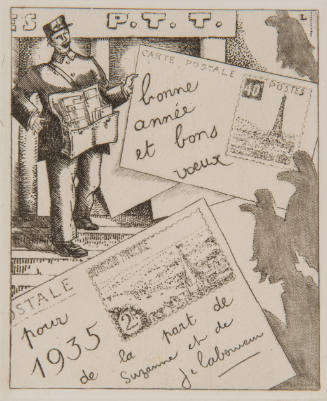 TS P.T.T. L
CARTE POSTALE
40 POSTES
bonne
année
et bons
vœux
OSTALE
2
pour
1935
de la part de
Suzanne et de
J E Laboureur